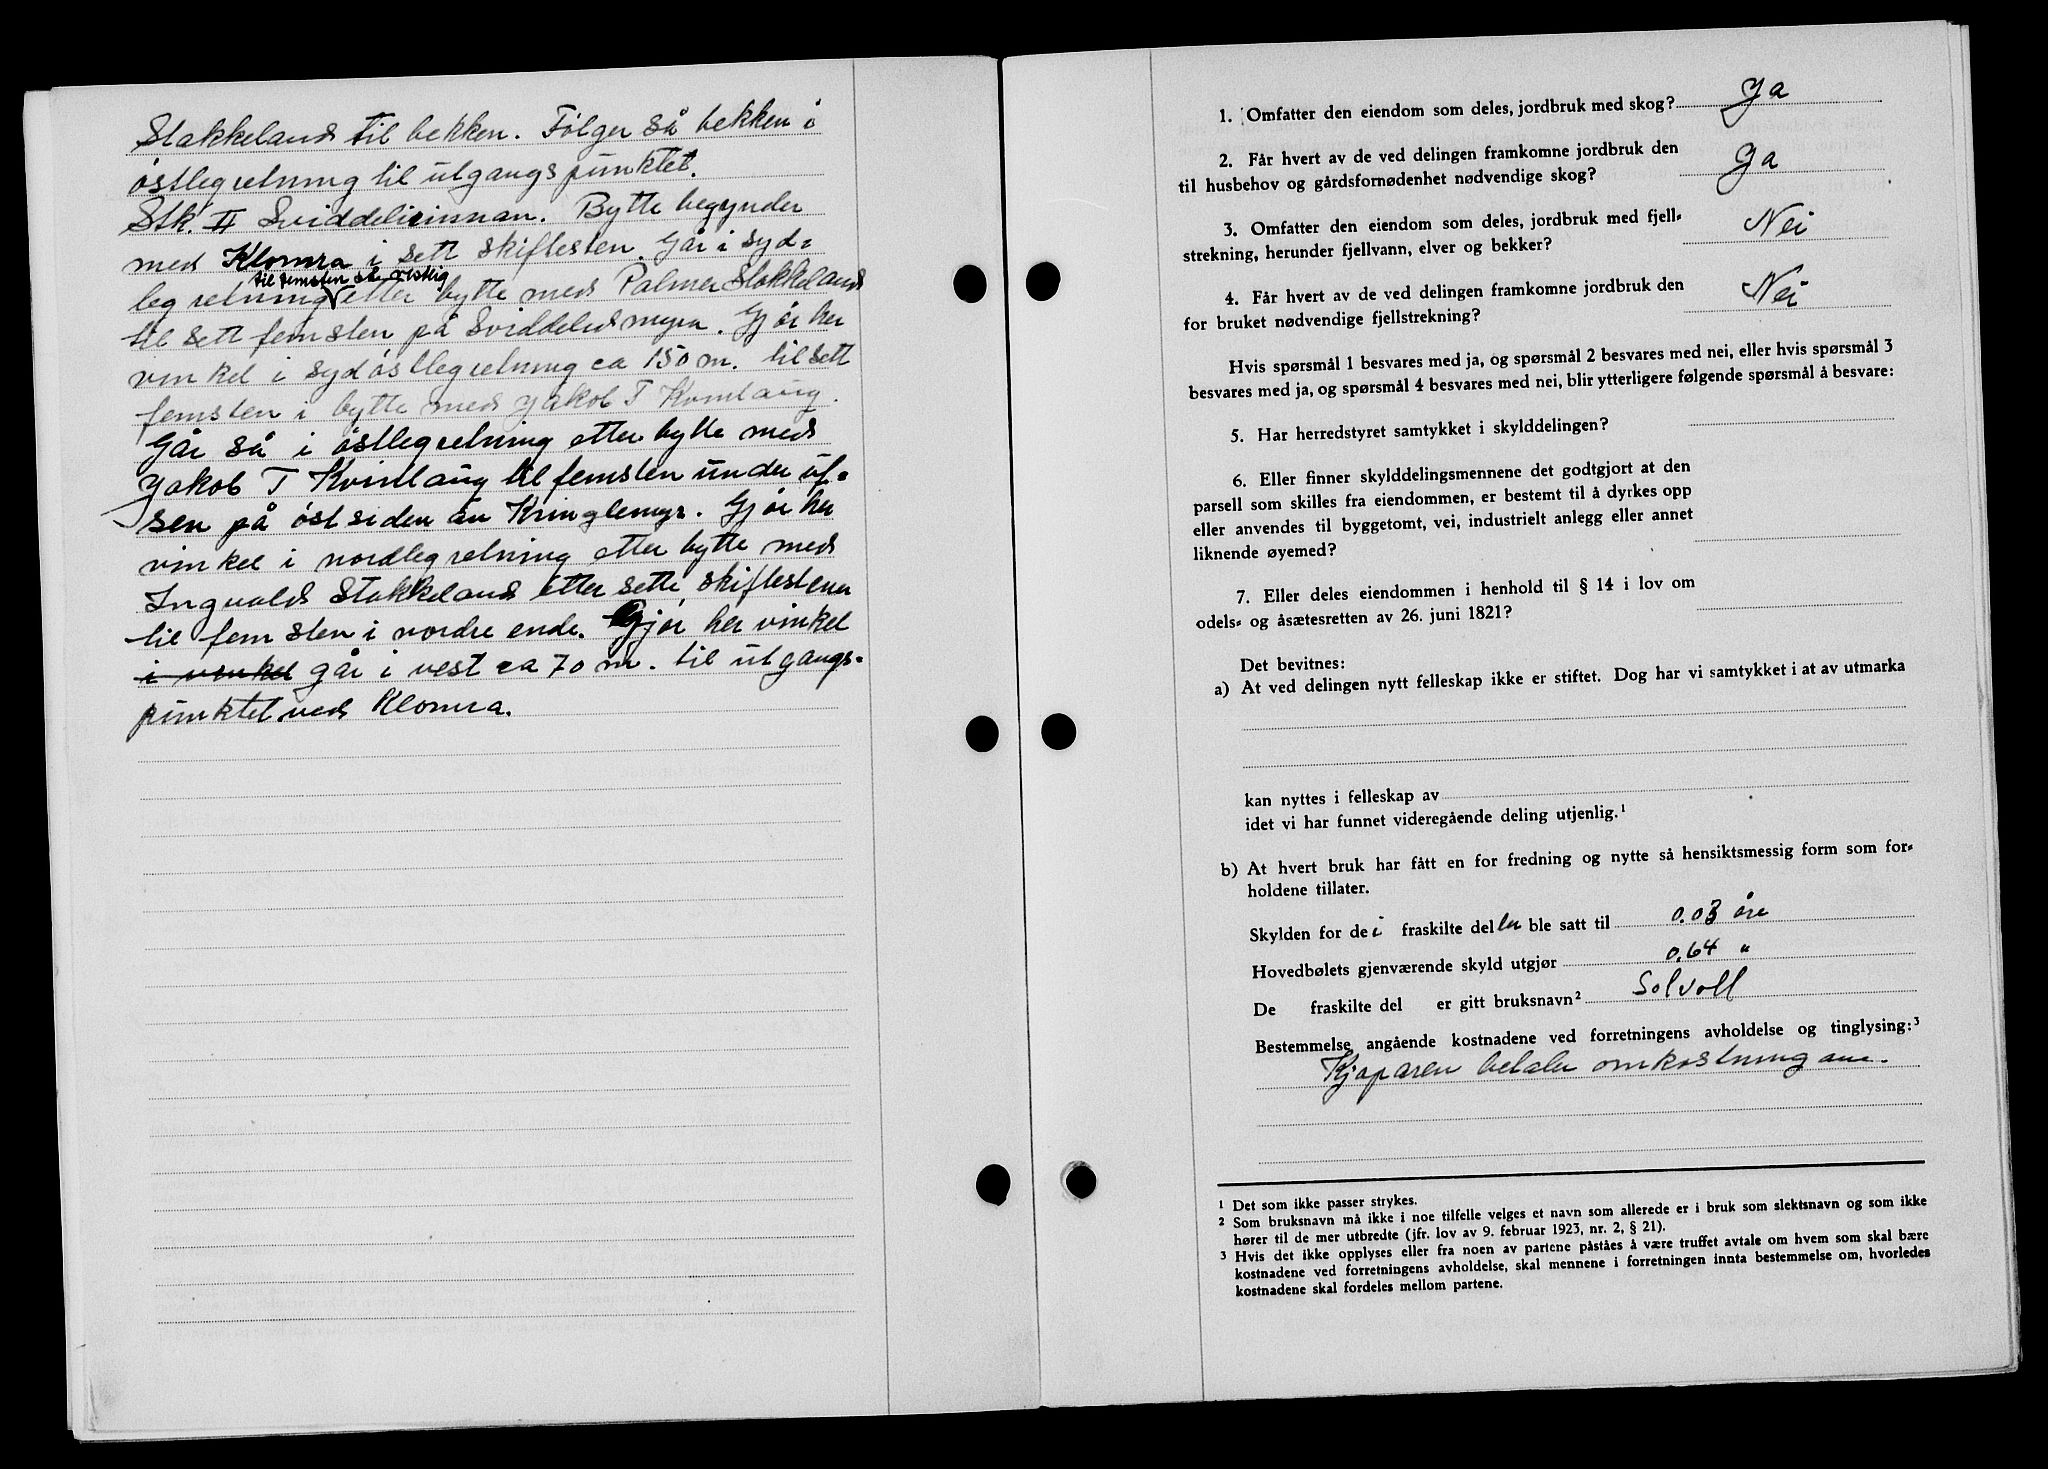 Stakkeland til bekken. Følger så bekken i
østleg retning til utgangspunktet.
Stk. II Sviddeliinnan. Bytte begynder
med Klomra i sett skiftesten. Går i syd-
til femsten
leg retning etter bytte med Palmer Stakkeland
til sett femsten på Sviddeliemyra. Gjør her
vinkel i sydøstleg retning ca 150 m. til sett
femsten i bytte med Jakob T Kvinlaug.
Går så i østleg retning etter bytte med
Jakob T Kvinlaug til femsten under uf-
sen på østsiden av Kringlemyr. Gjør her
vinkel i nordleg retning etter bytte med
Ingvald Stakkeland etter sette skiftestener
til femsten i nordre ende. Gjør her vinkel
i vinkel går i vest ca 70 m. til utgangs-
punktet ved Klomra.
1. Omfatter den eiendom som deles, jordbruk med skog? Ja
2. Får hvert av de ved delingen framkomne jordbruk den
til husbehov og gårdsfornødenhet nødvendige skog? Ja
3. Omfatter den eiendom som deles, jordbruk med fjell-
strekning, herunder fjellvann, elver og bekker? Nei
4. Får hvert av de ved delingen framkomne jordbruk den
for bruket nødvendige fjellstrekning? Nei
Hvis spørsmål 1 besvares med ja, og spørsmål 2 besvares med nei, eller hvis spørsmål 3
besvares med ja, og spørsmål 4 besvares med nei, blir ytterligere følgende spørsmål å besvare:
5. Har herredstyret samtykket i skylddelingen?
6. Eller finner skylddelingsmennene det godtgjort at den
parsell som skilles fra eiendommen, er bestemt til å dyrkes opp
eller anvendes til byggetomt, vei, industrielt anlegg eller annet
liknende øyemed?
7. Eller deles eiendommen i henhold til § 14 i lov om
odels- og åsætesretten av 26. juni 1821?
Det bevitnes:
a) At ved delingen nytt felleskap ikke er stiftet. Dog har vi samtykket i at av utmarka
kan nyttes i felleskap av
idet vi har funnet videregående deling utjenlig.¹
b) At hvert bruk har fått en for fredning og nytte så hensiktsmessig form som for-
holdene tillater.
Skylden for dei fraskilte deller ble satt til 0.03 øre
Hovedbølets gjenværende skyld utgjør 0.64 "
De fraskilte del er gitt bruksnavn² Solvoll
Bestemmelse angående kostnadene ved forretningens avholdelse og tinglysing:³
Kjøparen betaler omkostningane.
¹ Det som ikke passer strykes.
² Som bruksnavn må ikke i noe tilfelle velges et navn som allerede er i bruk som slektsnavn og som ikke
hører til de mer utbredte (jfr. lov av 9. februar 1923, nr. 2, § 21).
³ Hvis det ikke opplyses eller fra noen av partene påstås å være truffet avtale om hvem som skal bære
kostnadene ved forretningens avholdelse, skal mennene i forretningen innta bestemmelse om, hvorledes
kostnadene skal fordeles mellom partene.